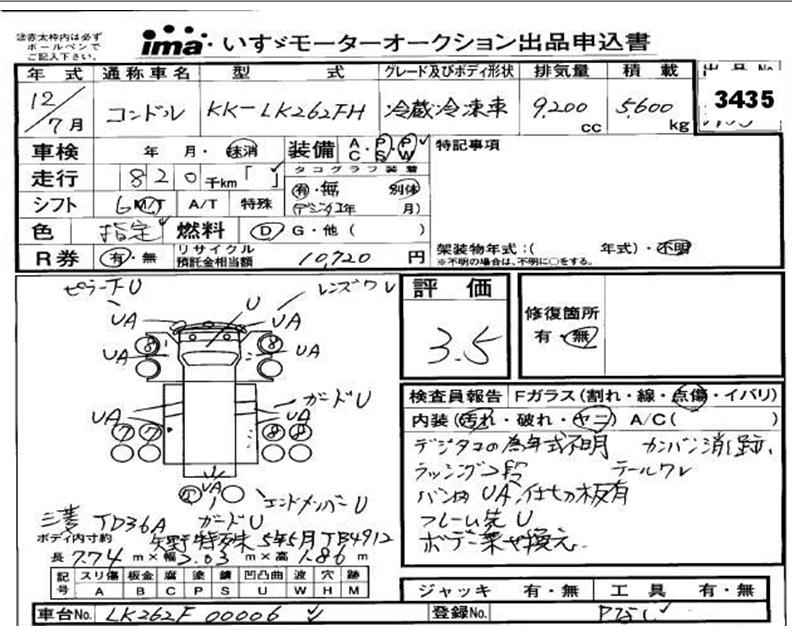 注赤太枠内は必ず
ボールペンで
ご記入下さい。
ima いすゞモーターオークション出品申込書
年式 通称車名 型式 グレード及びボディ形状 排気量 積載 出品No.
12/7月 コンドル KK-LK262FH 冷蔵冷凍車 9,200cc 5,600kg 3435
車検 年 月・抹消 装備 AC・PS・PW 特記事項
走行 820千km「 」 タコグラフ装着
有・無 別体
シフト 6M/T A/T 特殊 (デジタコ年 月)
色 指定 燃料 D G・他( )
R券 有・無 リサイクル預託金相当額 10,720円
架装物年式:( 年式)・不明
※不明の場合は、不明に○をする。
ピラー下U U レンズワレ
UA UA
8 8
UA UA
ガードU
UA UA
7 7 8 8
UA エンドメンバーU
三菱 TD36A ガードU
矢野特殊 5年5月 TB4912
ボディ内寸約
長7.74m×幅2.03m×高1.86m
記号 スリ傷 板金 腐 塗 錆 凹凸曲 波 穴 跡
A B C P S U W H M
車台No. LK262F 00006
評価
3.5
修復箇所
有・無
検査員報告 Fガラス(割れ・線・点傷・イバリ)
内装(汚れ・破れ・ヤニ) A/C( )
デジタコの為年式不明 カンバン消し跡、
ラッシング2段 テールワレ
バン内UA、仕切板有
フレーム先U
ボデー乗せ換え
ジャッキ 有・無 工具 有・無
登録No.